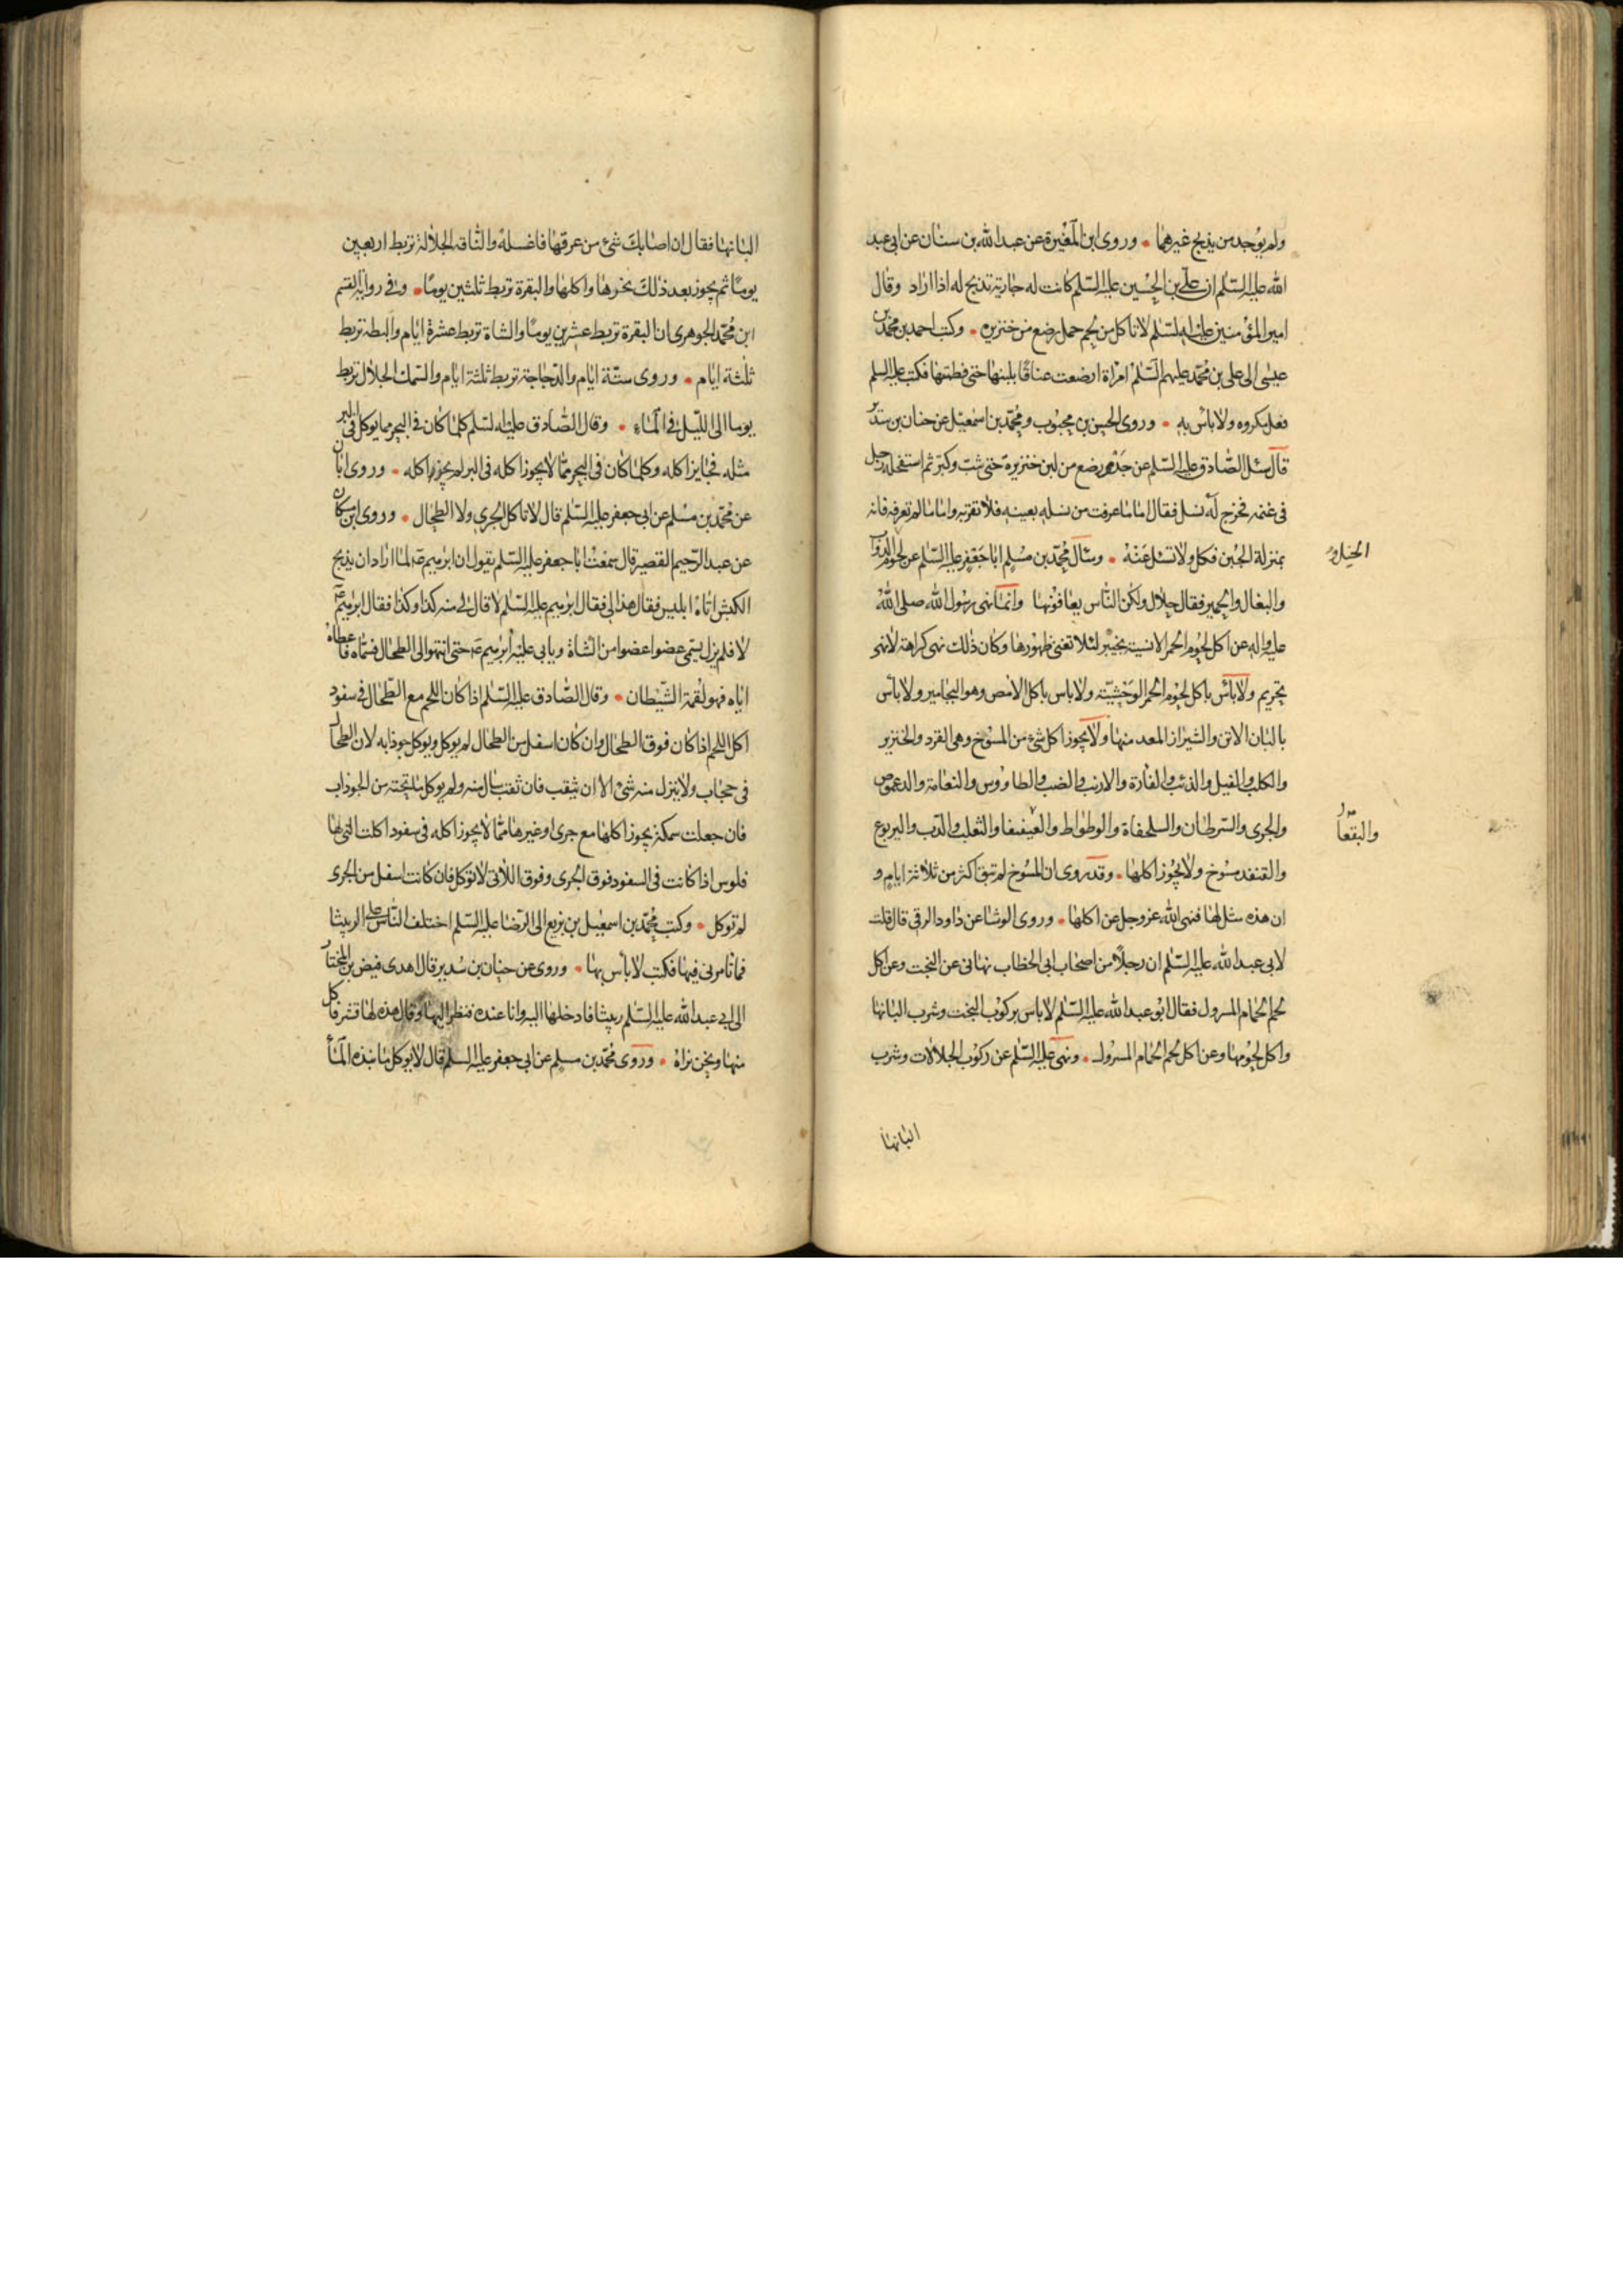 ولم يوجد من يذبح غيرهما ٠ وروى ابن المغيرة عن عبد الله بن سنان عن ابى عبد
الله عليه السلم ان على بن الحسين عليه السلم كانت له جارية تذبح له اذا اراد وقال
امير المؤمنين عليه السلم لا تاكل من لحم حمل رضع من خنزيره ٠ وكتب احمد بن محمد بن
عيسى الى على بن محمد عليهم السلم امراة ارضعت عناقا بلبنها حتى فطمتها فكتب عليه السلم
فعل مكروه ولا باس به ٠ وروى الحسن بن محبوب ومحمد بن اسمعيل عن حنان بن سدير
قال سئل الصادق عليه السلم عن جدى رضع من لبن خنزيرة حتى شب وكبر ثم استفحله رجل
فى غنمه فخرج له نسل فقال اما ما عرفت من نسله بعينه فلا تقربه واما ما لم تعرفه فانه
بمنزلة الجبن فكل ولا تسئل عنه ٠ وسال محمد بن مسلم ابا جعفر عليه السلم عن لحوم الدواب
الخيل و
والبغال والحمير فقال حلال ولكن الناس يعافونها وانما نهى رسول الله صلى الله
عليه واله عن اكل لحوم الحمر الانسية بخيبر لئلا تفنى ظهورها وكان ذلك نهى كراهة لا نهى
تحريم ولا باس باكل لحوم الحمر الوحشيّة ولا باس باكل الامص وهو اليحامير ولا باس
بالبان الاتن والشيراز المعد منها ولا يجوز اكل شئ من المسوخ وهى القرد والخنزير
والكلب والفيل والذئب والفارة والارنب والضب والطاووس والنعامة والدعموص
والجرى والسرطان والسلحفاة والوطواط والعيفيفا والثعلب والدب واليربوع
والبقعا
والقنفد مسوخ ولا يجوز اكلها ٠ وقد روى ان المسوخ لم تبق اكثر من ثلاثة ايام و
ان هذه مثل لها فنهى الله عز وجل عن اكلها ٠ وروى الوشا عن داود الرقى قال قلت
لابى عبد الله عليه السلم ان رجلا من اصحاب ابى الخطاب نهانى عن البخت وعن اكل
لحم الحمام المسرول فقال ابو عبد الله عليه السلم لا باس بركوب البخت وشرب البانها
واكل لحومها وعن اكل لحم الحمام المسرول ٠ ونهى عليه السلم عن ركوب الجلالات وشرب
البانها
البانها فقال ان اصابك شئ من عرقها فاغسله والناقة الجلالة تربط اربعين
يوما ثم يجوز بعد ذلك نحرها واكلها والبقرة تربط ثلثين يوما ٠ وفى رواية القسم
ابن محمد الجوهرى ان البقرة تربط عشرين يوما والشاة تربط عشرة ايام والبطة تربط
ثلثة ايام ٠ وروى ستة ايام والدجاجة تربط ثلثة ايام والسمك الجلال تربط
يوما الى الليل فى الماء ٠ وقال الصادق عليه السلم كلما كان فى البحر مما يوكل فى البر
مثله فجايز اكله وكلما كان فى البحر مما لا يجوز اكله فى البر لم يجز اكله ٠ وروى ابان
عن محمد بن مسلم عن ابى جعفر عليه السلم قال لا تاكل الجرى ولا الطحال ٠ وروى ابن مسكان
عن عبد الرحيم القصير قال سمعت ابا جعفر عليه السلم يقول ان ابرهيم ع لما اراد ان يذبح
الكبش اتاه ابليس فقال هذا لى فقال ابرهيم عليه السلم لا قال لى منه كذا وكذا فقال ابرهيم ع
لا فلم يزل يسمى عضوا عضوا من الشاة ويابى عليه ابرهيم ع حتى انتهوا الى الطحال فسماه فاعطاه
اياه فهو لقمة الشيطان ٠ وقال الصادق عليه السلم اذا كان اللحم مع الطحال فى سفود
اكل اللحم اذا كان فوق الطحال وان كان اسفل من الطحال لم يوكل ويوكل جوذابه لان الطحال
فى حجاب ولا ينزل منه شئ الا ان يثقب فان ثقب سال منه ولم يوكل ما تحته من الجوذاب
فان جعلت سمكة يجوز اكلها مع جرى او غيرها مما لا يجوز اكله فى سفود اكلت التى لها
فلوس اذا كانت فى السفود فوق الجرى وفوق اللاتى لا توكل فان كانت اسفل من الجرى
لم توكل ٠ وكتب محمد بن اسمعيل بن بزيع الى الرضا عليه السلم اختلف الناس على الربيثا
فما تامرنى فيها فكتب لا باس بها ٠ وروى عن حنان بن سدير قال اهدى فيض بن المختار
الى ابى عبد الله عليه السلم ربيثا فادخلها اليه وانا عنده فنظر اليها وقال هذه لها قشر فاكل
منها ونحن نراه ٠ وروى محمد بن مسلم عن ابى جعفر عليه السلم قال لا يوكل ما نبذه الماء